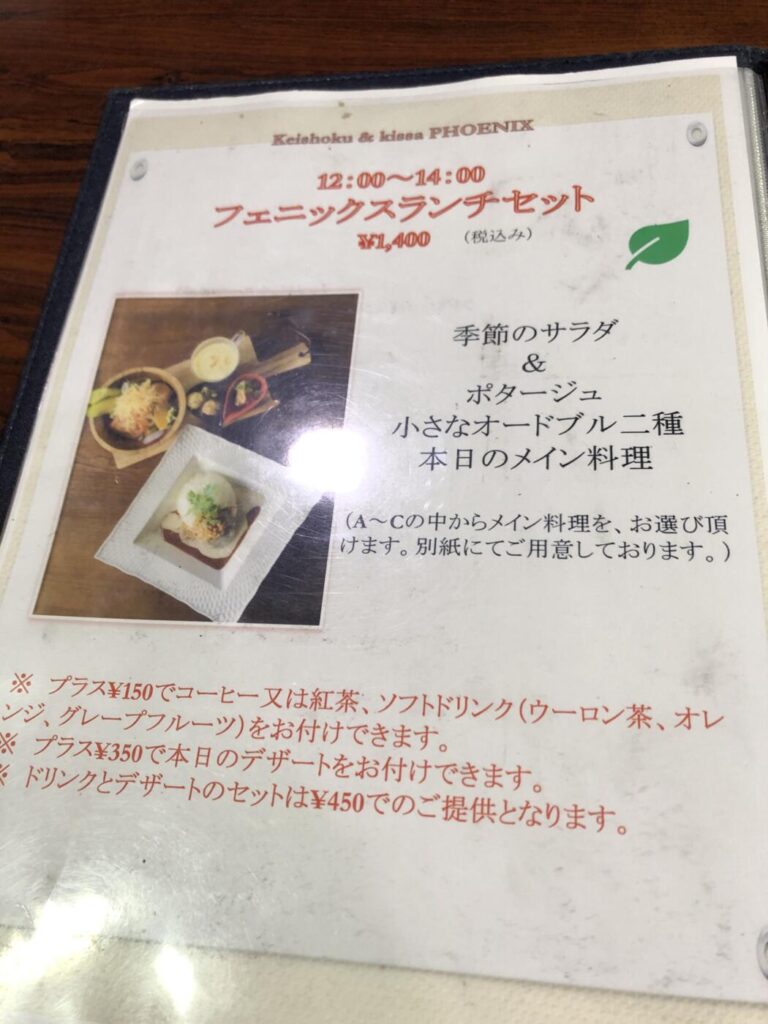 Keishoku & kissa PHOENIX
12:00～14:00
フェニックスランチセット
¥1,400 （税込み）
季節のサラダ
＆
ポタージュ
小さなオードブル二種
本日のメイン料理
（A～Cの中からメイン料理を、お選び頂
けます。別紙にてご用意しております。）
※ プラス¥150でコーヒー又は紅茶、ソフトドリンク（ウーロン茶、オレ
ンジ、グレープフルーツ）をお付けできます。
※ プラス¥350で本日のデザートをお付けできます。
※ ドリンクとデザートのセットは¥450でのご提供となります。